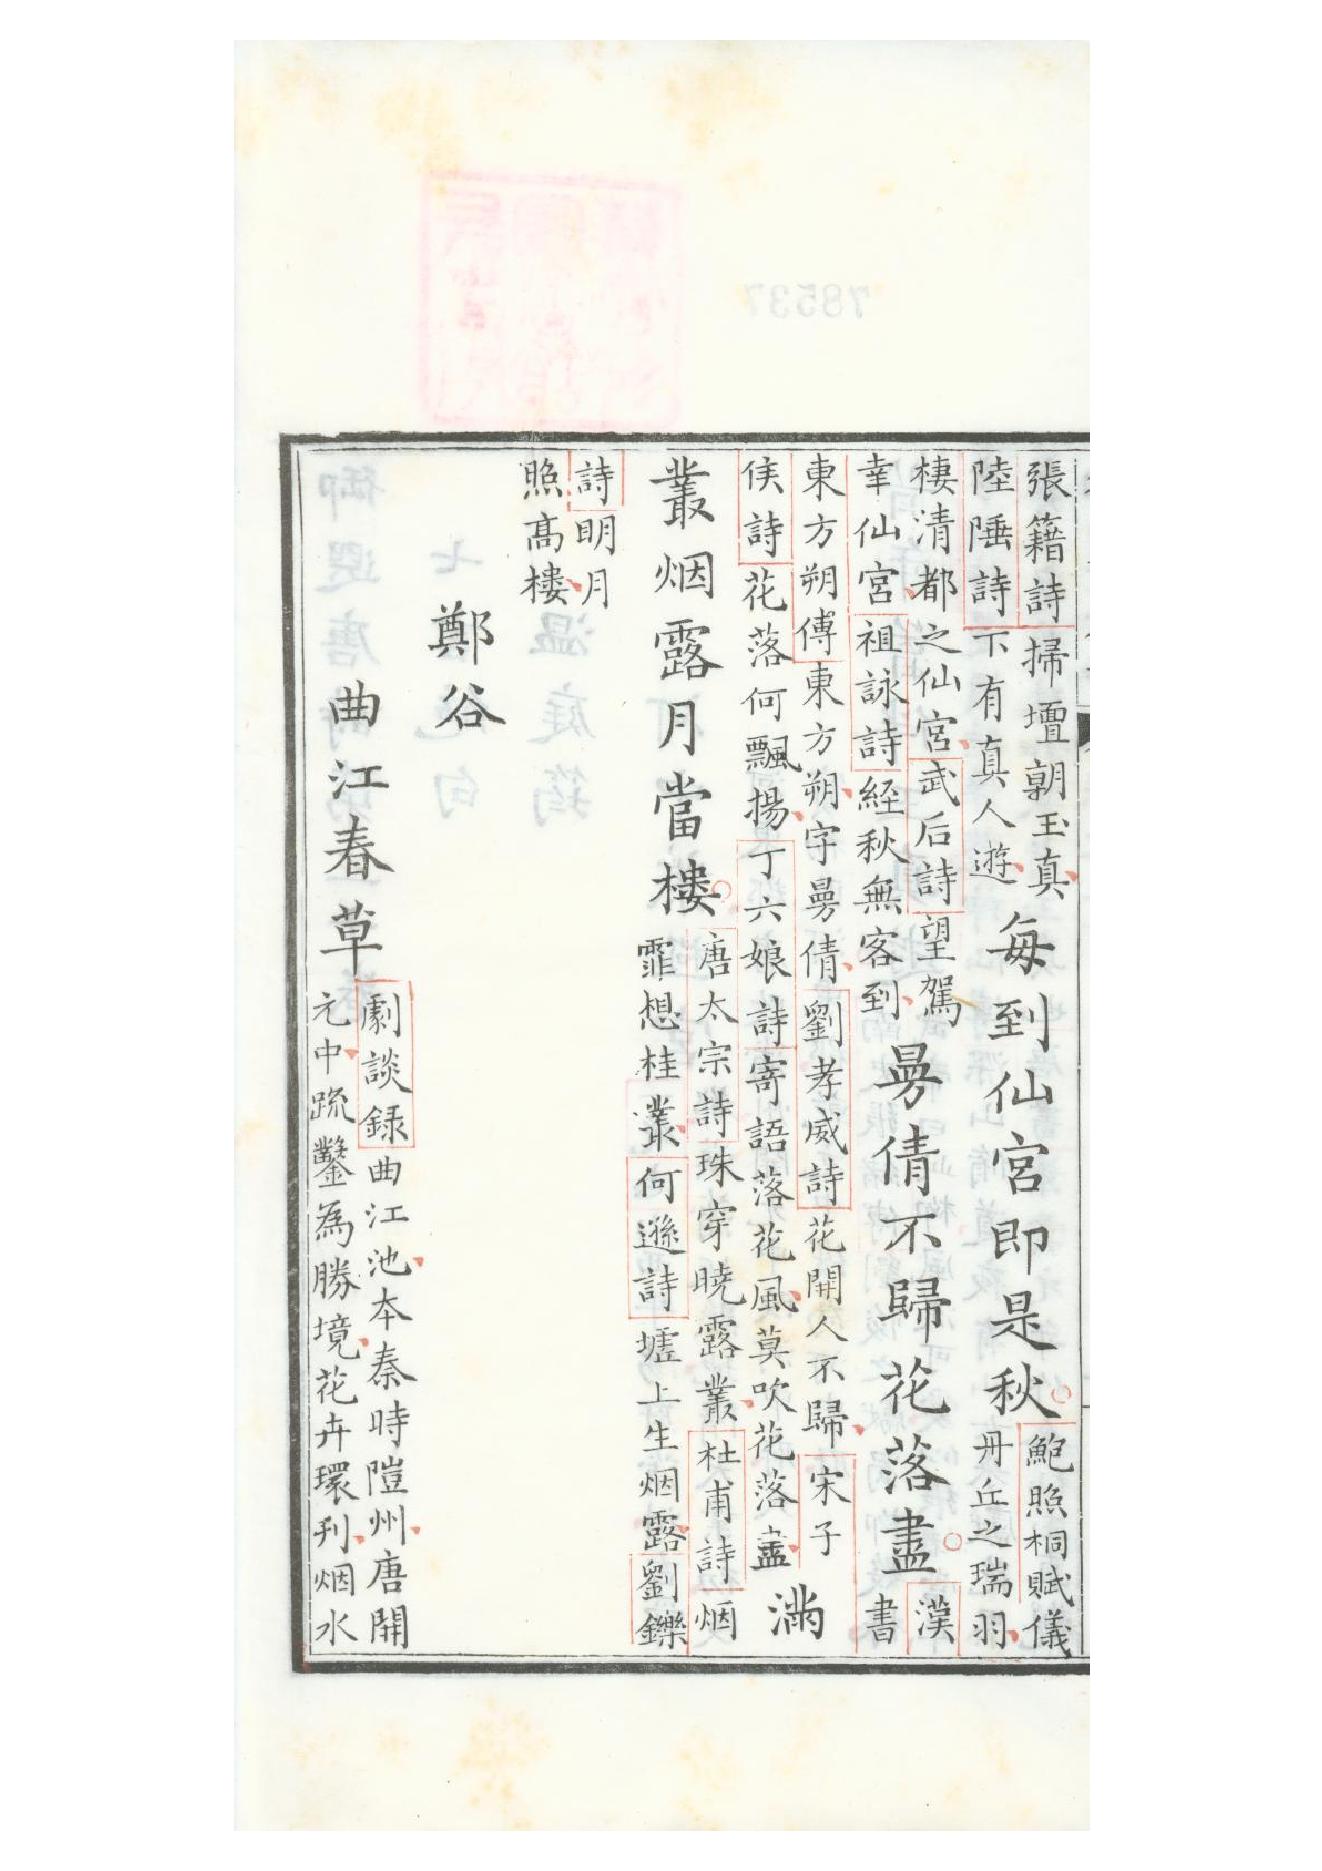 張籍詩掃壇朝玉真
陸陲詩下有真人遊
每到仙宮即是秋
鮑照桐賦儀
丹丘之瑞羽
棲清都之仙宮武后詩望駕
幸仙宮祖詠詩經秋無客到
曼倩不歸花落盡
漢
書
東方朔傳東方朔字曼倩劉孝威詩花開人不歸宋子
侯詩花落何飄揚丁六娘詩寄語落花風莫吹花落盡
滿
叢烟露月當樓
唐太宗詩珠穿曉露叢杜甫詩烟
霏想桂叢何遜詩壚上生烟露劉鑠
詩明月
照高樓
鄭谷
曲江春草
劇談録曲江池本秦時隑州唐開
元中疏鑿爲勝境花卉環列烟水